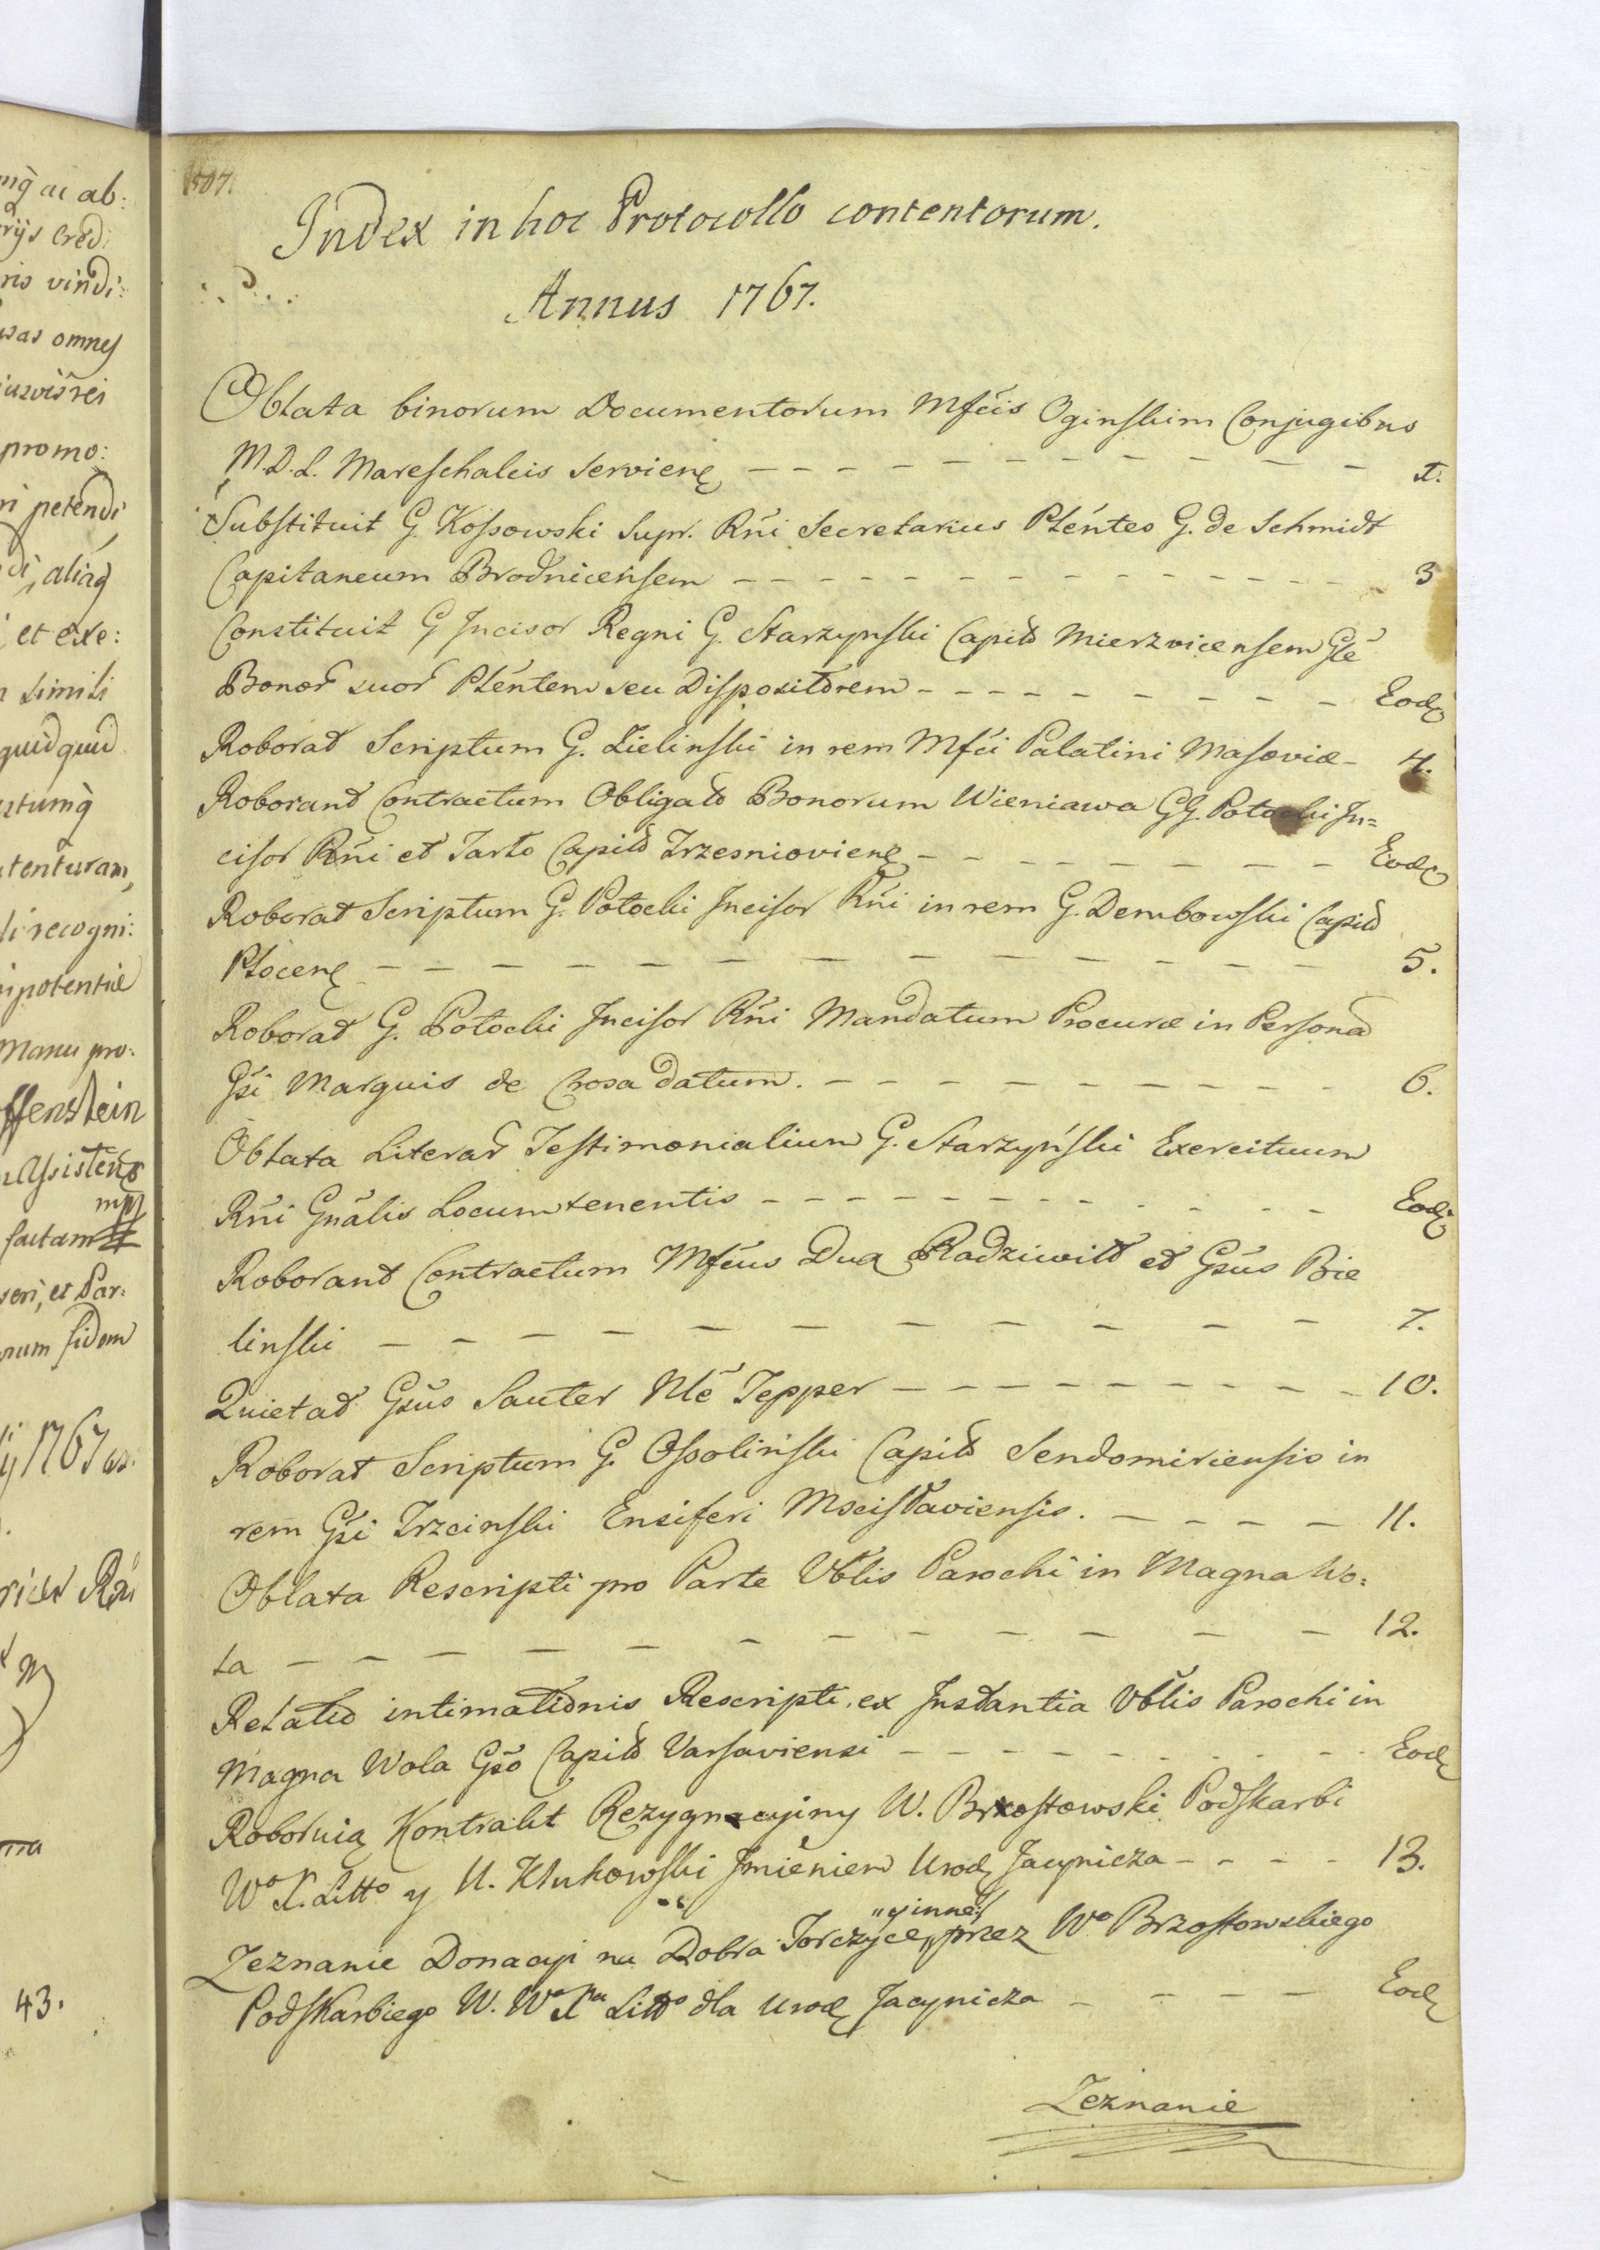 507.
Index in hoc Protocollo contentorum.
Annus 1767.
Oblata binorum Documentorum Mfcis Oginskim Conjugibus
M.D.L. Mareschalcis Servienę 1.
Substituit G. Kossowski Supr. Rñi Secretarius Plentes G. de Schmidt
Capitaneum Brodnicensem 3
Constituit G Incisor Regni G. Starzynski Capit̃ Mierzvicensem Gle
Bonor̃ suor̃ Plentem seu Dispositorem Eodę
Roborat Scriptum G. Zielinski in rem Mfci Palatini Masoviæ 4.
Roborant Contractum Obligat̃ Bonorum Wieniawa GG. Potocki In=
cisor Rñi et Tarło Capit̃ Trzesniovienę Eodę
Roborat Scriptum G. Potocki Incisor Rñi in rem G. Dembowski Capit̃
Plocenę 5.
Roborat G. Potocki Incisor Rñi Mandatum Procuræ in Persona
Gsi Marquis de Crosa datum. 6.
Oblata Literar̃ Testimonialium G. Starzyński Exercituum
Rñi Gnãlis Locumtenentis Eodę
Roborant Contractum Mfcus Dux Radziwiłł et Gsus Bie
linski 7.
Quietat Gsus Sauter Nle Tepper 10.
Roborat Scriptum G. Ossoliński Capit̃ Sendomiriensis in
rem Gsi Trzcinski Ensiferi Mscislaviensis. 11.
Oblata Rescripti pro Parte Vblis Parochi in Magna Wo:
la 12.
Relatio intimationis Rescripti ex Instantia Vblis Parochi in
Magna Wola Gso Capit̃ Varsaviensi Eodę
Roboruią Kontrakt Rezygnacyiny W. Brzostowski Podskarbi
Wo X. Litto y U. Klukowski Jmięniem Urodz Jacynicza 13.
"y inne"
Zeznanie Donacyi na Dobra Torczyce, przez Wo Brzostowskiego
Podskarbiego W. Wo Xa Litto dla Urodz Jacynicza Eodę
Zeznanie